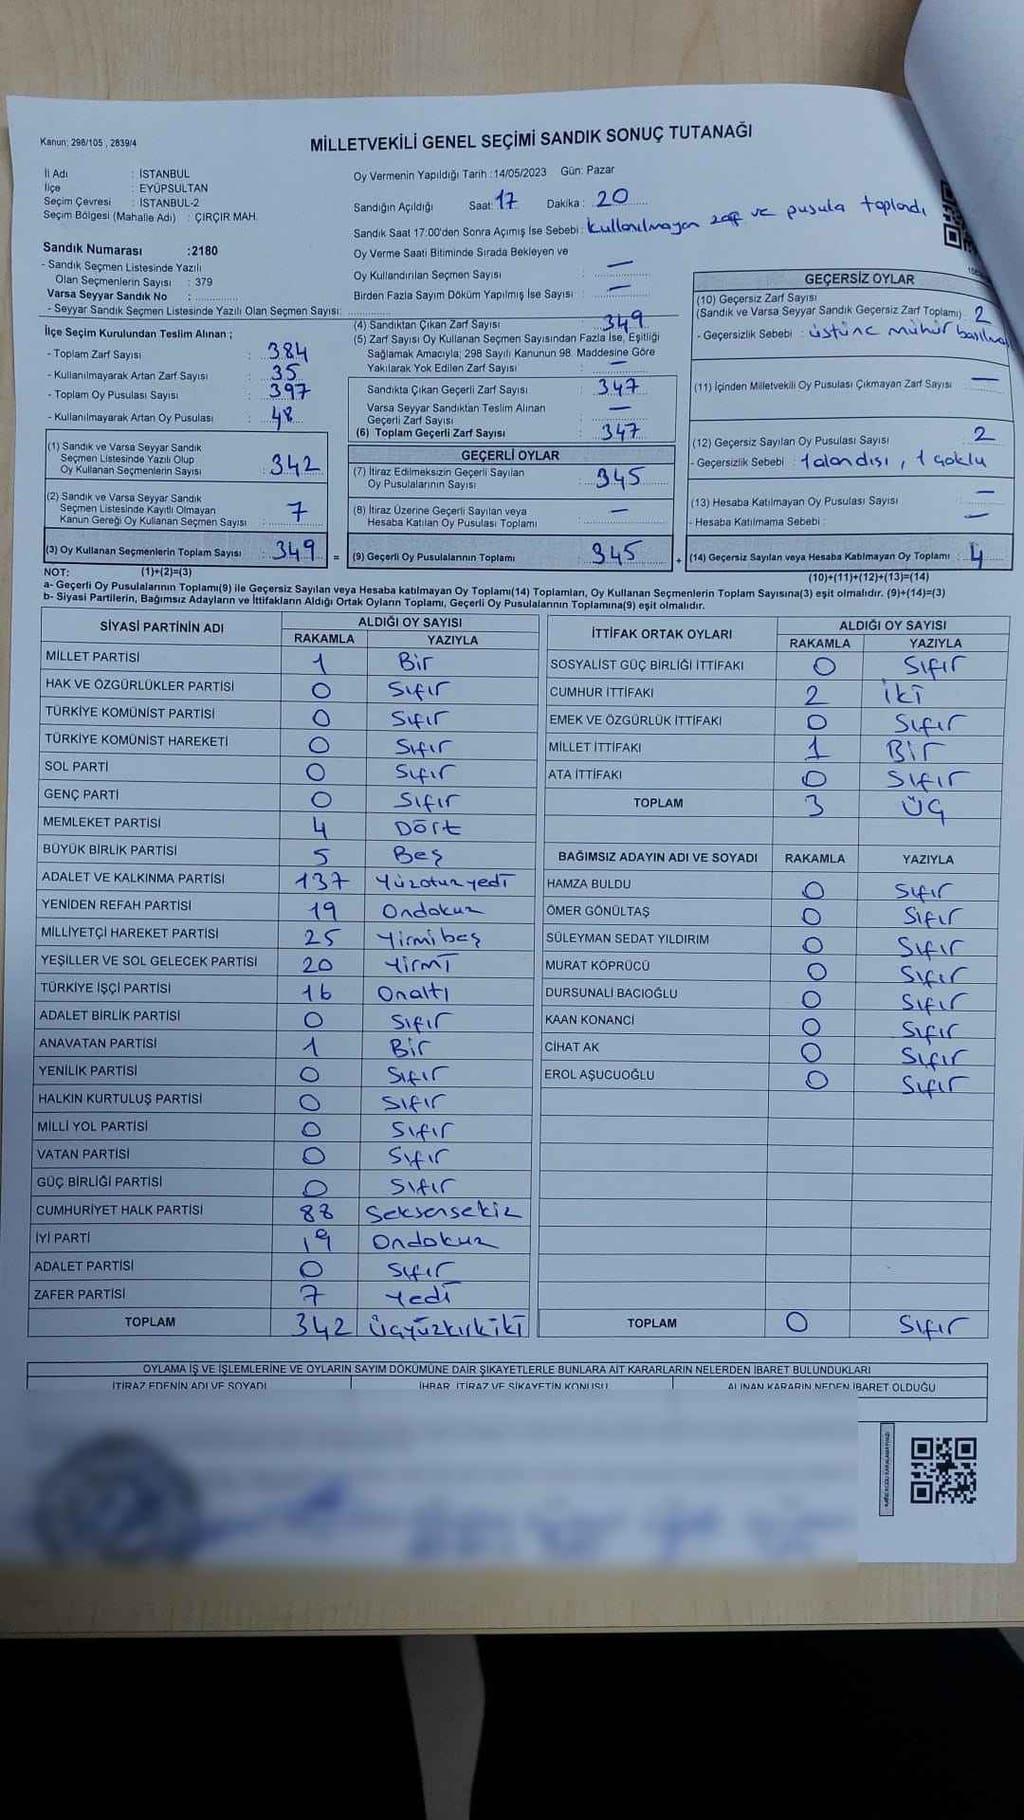 Kanun: 298/105 , 2839/4
MİLLETVEKİLİ GENEL SEÇİMİ SANDIK SONUÇ TUTANAĞI
İl Adı : İSTANBUL
İlçe : EYÜPSULTAN
Seçim Çevresi : İSTANBUL-2
Seçim Bölgesi (Mahalle Adı) : ÇIRÇIR MAH.
Oy Vermenin Yapıldığı Tarih :14/05/2023 Gün: Pazar
Sandığın Açıldığı Saat: 17 Dakika : 20
Sandık Saat 17:00'den Sonra Açımış İse Sebebi : Kullanılmayan zarf ve pusula toplandı
Sandık Numarası :2180
- Sandık Seçmen Listesinde Yazılı
Olan Seçmenlerin Sayısı : 379
Varsa Seyyar Sandık No :
- Seyyar Sandık Seçmen Listesinde Yazılı Olan Seçmen Sayısı:
Oy Verme Saati Bitiminde Sırada Bekleyen ve
Oy Kullandırılan Seçmen Sayısı : —
Birden Fazla Sayım Döküm Yapılmış İse Sayısı : —
İlçe Seçim Kurulundan Teslim Alınan ;
- Toplam Zarf Sayısı : 384
- Kullanılmayarak Artan Zarf Sayısı : 35
- Toplam Oy Pusulası Sayısı : 397
- Kullanılmayarak Artan Oy Pusulası : 48
(1) Sandık ve Varsa Seyyar Sandık
Seçmen Listesinde Yazılı Olup
Oy Kullanan Seçmenlerin Sayısı : 342
(2) Sandık ve Varsa Seyyar Sandık
Seçmen Listesinde Kayıtlı Olmayan
Kanun Gereği Oy Kullanan Seçmen Sayısı : 7
(3) Oy Kullanan Seçmenlerin Toplam Sayısı : 349 =
(1)+(2)=(3)
(4) Sandıktan Çıkan Zarf Sayısı : 349
(5) Zarf Sayısı Oy Kullanan Seçmen Sayısından Fazla İse, Eşitliği
Sağlamak Amacıyla; 298 Sayılı Kanunun 98. Maddesine Göre
Yakılarak Yok Edilen Zarf Sayısı : —
Sandıkta Çıkan Geçerli Zarf Sayısı : 347
Varsa Seyyar Sandıktan Teslim Alınan
Geçerli Zarf Sayısı : —
(6) Toplam Geçerli Zarf Sayısı : 347
GEÇERLİ OYLAR
(7) İtiraz Edilmeksizin Geçerli Sayılan
Oy Pusulalarının Sayısı : 345
(8) İtiraz Üzerine Geçerli Sayılan veya
Hesaba Katılan Oy Pusulası Toplamı : —
(9) Geçerli Oy Pusulalarının Toplamı : 345 +
GEÇERSİZ OYLAR
(10) Geçersiz Zarf Sayısı
(Sandık ve Varsa Seyyar Sandık Geçersiz Zarf Toplamı) : 2
- Geçersizlik Sebebi : üstüne mühür
(11) İçinden Milletvekili Oy Pusulası Çıkmayan Zarf Sayısı : —
(12) Geçersiz Sayılan Oy Pusulası Sayısı : 2
- Geçersizlik Sebebi : 1 alan dışı , 1 çoklu
(13) Hesaba Katılmayan Oy Pusulası Sayısı : —
- Hesaba Katılmama Sebebi : —
(14) Geçersiz Sayılan veya Hesaba Katılmayan Oy Toplamı : 4
(10)+(11)+(12)+(13)=(14)
NOT:
a- Geçerli Oy Pusulalarının Toplamı(9) ile Geçersiz Sayılan veya Hesaba katılmayan Oy Toplamı(14) Toplamları, Oy Kullanan Seçmenlerin Toplam Sayısına(3) eşit olmalıdır. (9)+(14)=(3)
b- Siyasi Partilerin, Bağımsız Adayların ve İttifakların Aldığı Ortak Oyların Toplamı, Geçerli Oy Pusulalarının Toplamına(9) eşit olmalıdır.
SİYASİ PARTİNİN ADI ALDIĞI OY SAYISI
RAKAMLA YAZIYLA
MİLLET PARTİSİ 1 Bir
HAK VE ÖZGÜRLÜKLER PARTİSİ 0 Sıfır
TÜRKİYE KOMÜNİST PARTİSİ 0 Sıfır
TÜRKİYE KOMÜNİST HAREKETİ 0 Sıfır
SOL PARTİ 0 Sıfır
GENÇ PARTİ 0 Sıfır
MEMLEKET PARTİSİ 4 Dört
BÜYÜK BİRLİK PARTİSİ 5 Beş
ADALET VE KALKINMA PARTİSİ 137 Yüzotuzyedi
YENİDEN REFAH PARTİSİ 19 Ondokuz
MİLLİYETÇİ HAREKET PARTİSİ 25 Yirmibeş
YEŞİLLER VE SOL GELECEK PARTİSİ 20 Yirmi
TÜRKİYE İŞÇİ PARTİSİ 16 Onaltı
ADALET BİRLİK PARTİSİ 0 Sıfır
ANAVATAN PARTİSİ 1 Bir
YENİLİK PARTİSİ 0 Sıfır
HALKIN KURTULUŞ PARTİSİ 0 Sıfır
MİLLİ YOL PARTİSİ 0 Sıfır
VATAN PARTİSİ 0 Sıfır
GÜÇ BİRLİĞİ PARTİSİ 0 Sıfır
CUMHURİYET HALK PARTİSİ 88 Seksensekiz
İYİ PARTİ 19 Ondokuz
ADALET PARTİSİ 0 Sıfır
ZAFER PARTİSİ 7 Yedi
TOPLAM 342 Üçyüzkırkiki
İTTİFAK ORTAK OYLARI ALDIĞI OY SAYISI
RAKAMLA YAZIYLA
SOSYALİST GÜÇ BİRLİĞİ İTTİFAKI 0 Sıfır
CUMHUR İTTİFAKI 2 İki
EMEK VE ÖZGÜRLÜK İTTİFAKI 0 Sıfır
MİLLET İTTİFAKI 1 Bir
ATA İTTİFAKI 0 Sıfır
TOPLAM 3 Üç
BAĞIMSIZ ADAYIN ADI VE SOYADI RAKAMLA YAZIYLA
HAMZA BULDU 0 Sıfır
ÖMER GÖNÜLTAŞ 0 Sıfır
SÜLEYMAN SEDAT YILDIRIM 0 Sıfır
MURAT KÖPRÜCÜ 0 Sıfır
DURSUNALİ BACIOĞLU 0 Sıfır
KAAN KONANCİ 0 Sıfır
CİHAT AK 0 Sıfır
EROL AŞUCUOĞLU 0 Sıfır
TOPLAM 0 Sıfır
OYLAMA İŞ VE İŞLEMLERİNE VE OYLARIN SAYIM DÖKÜMÜNE DAİR ŞİKAYETLERLE BUNLARA AİT KARARLARIN NELERDEN İBARET BULUNDUKLARI
İTİRAZ EDENİN ADI VE SOYADI İHBAR, İTİRAZ VE ŞİKAYETİN KONUSU ALINAN KARARIN NEDEN İBARET OLDUĞU